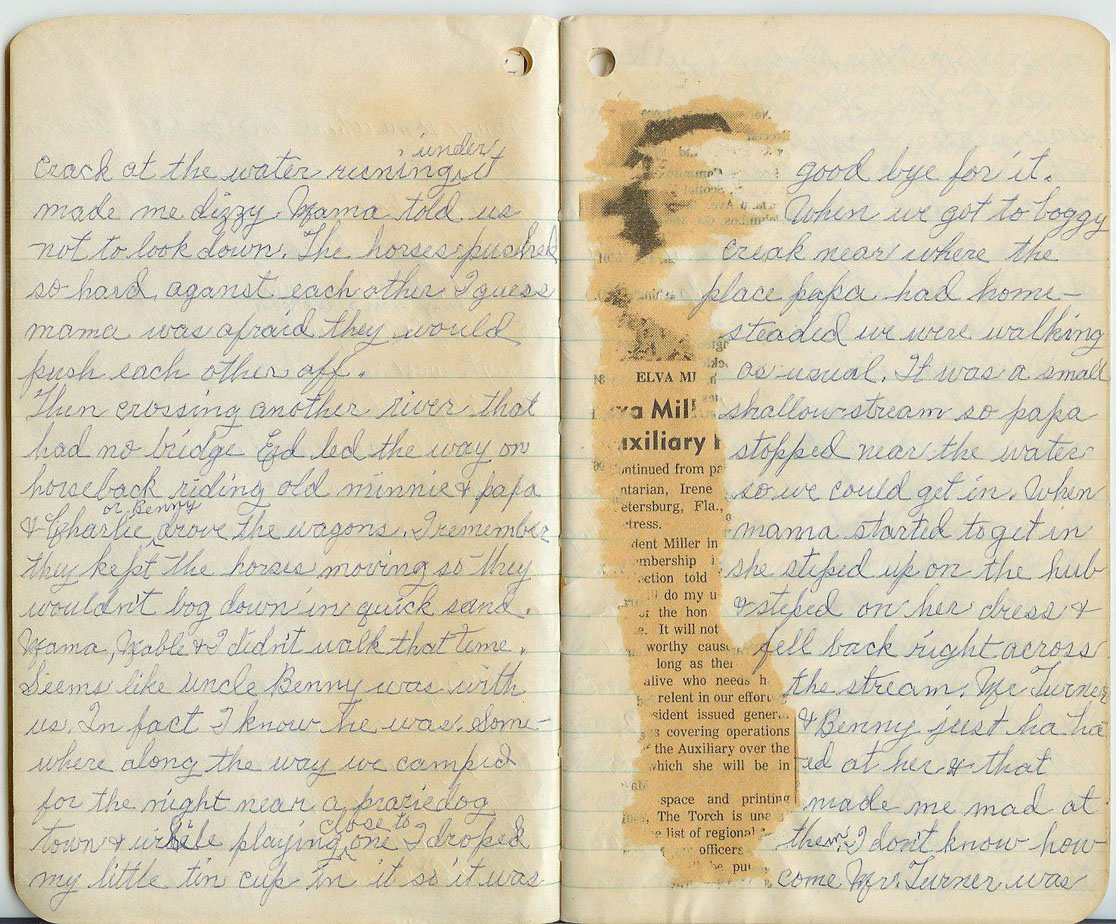 crack at the water runing under it
made me dizzy. Mama told us
not to look down. The horses pushed
so hard aganst each other I guess
mama was afraid they would
push each other off.
Then crossing another river that
had no bridge Ed led the way on
horseback riding old minnie & papa
& Charlie or Benny drove the wagons. I remember
they kept the horses moving so they
wouldn't bog down in quick sand.
Mama, Mable & I didn't walk that time.
Seems like uncle Benny was with
us. In fact I know he was. Some-
where along the way we camped
for the night near a prariedog
town & while playing close to one I droped
my little tin cup in it so it was
good bye for it.
When we got to boggy
creak near where the
place papa had home-
steaded we were walking
as usual. It was a small
shallow stream so papa
stopped near the water
so we could get in. When
mama started to get in
she steped up on the hub
& steped on her dress &
fell back right across
the stream. Mr Turner
& Benny just ha ha
ad at her & that
made me mad at
them. I don't know how
come Mr. Turner was
ELVA MI
xa Mill
uxiliary
ontinued from pa
ntarian, Irene
etersburg, Fla.,
ctress.
dent Miller in
mbership
ection told
do my u
of the hon
e. It will not
worthy cause
long as ther
alive who needs h
relent in our effort
sident issued genera
s covering operations
the Auxiliary over the
which she will be in
space and printing
The Torch is una
e list of regional
officers
be pu